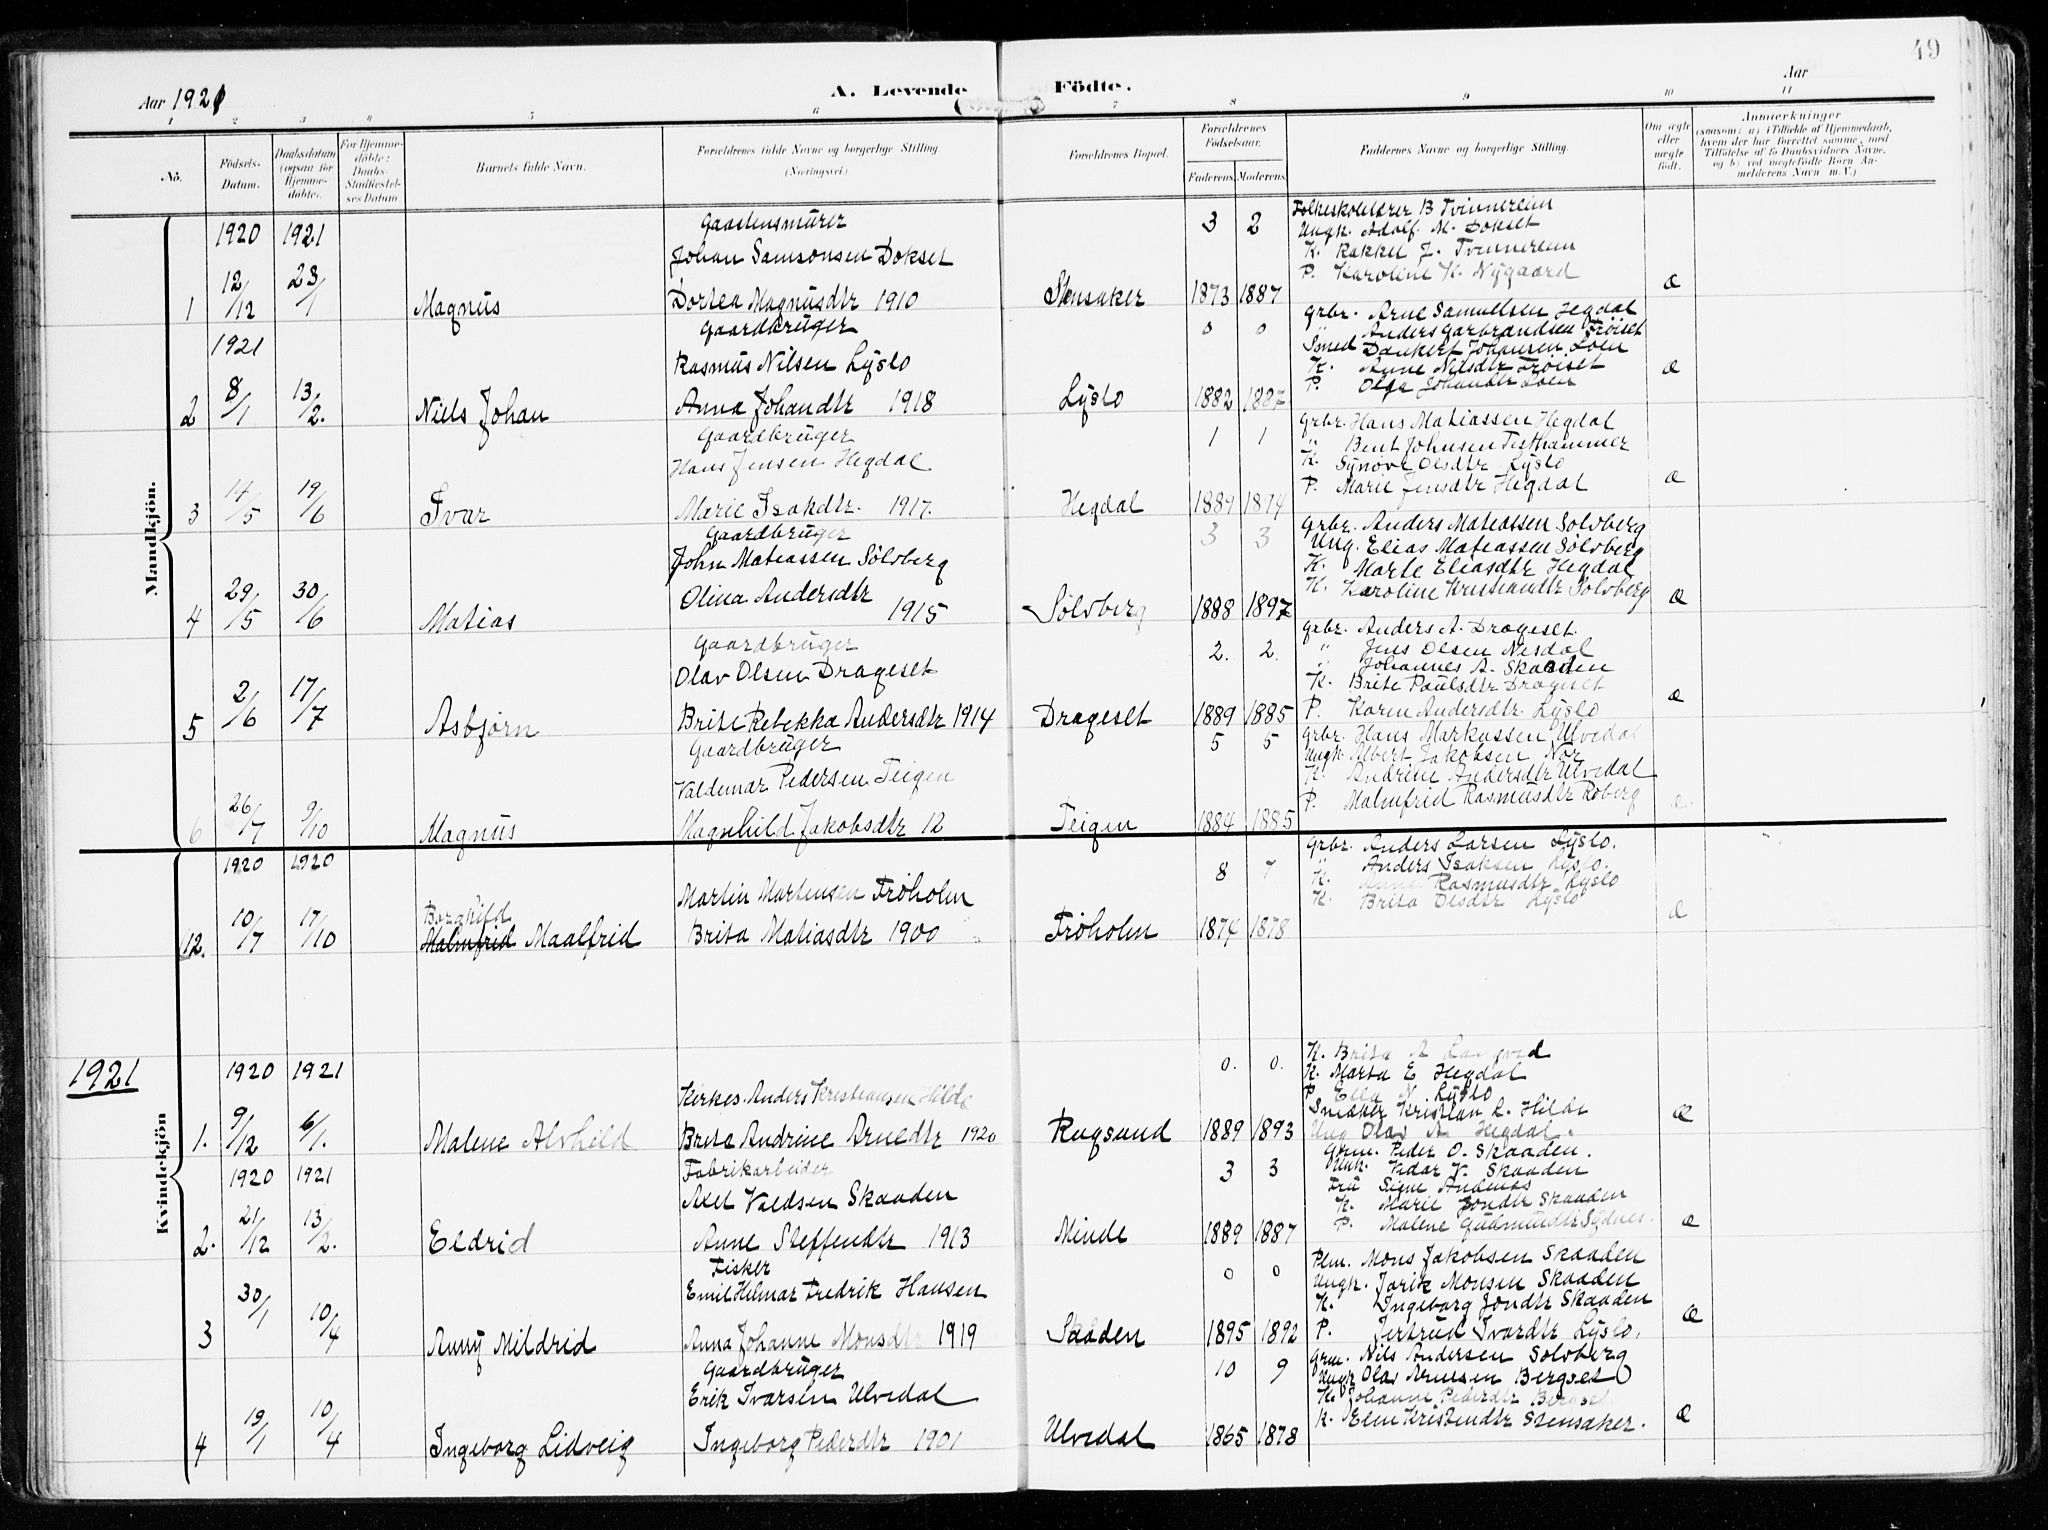 49
Aar 1921
A. Levende Födte.
Aar
1 2 3 4 5 6 7 8 9 10 11
Nö.
Födsels-Datum.
Daabsdatum (ogsaa for Hjemme-döbte).
For Hjemme-döbte: Daabs-Stadfæstel-ses Datum
Barnets fulde Navn.
Forældrenes fulde Navne og borgerlige Stilling. (Næringsvei.)
Forældrenes Bopæl.
Forældrenes Födselsaar.
Faderens. Moderens.
Faddernes Navne og borgerlige Stilling.
Om ægte eller uægte födt.
Anmærkninger
(saasom: a) i Tilfælde af Hjemmedaab, hvem der har forrettet samme, med Tilföielse af to Daabsvidners Navne, og b) ved uægtefödte Börn An-melderens Navn m. V.)
Mandkjön.
1920 1921
1 12/12 23/1 Magnus
Johan Samsonsen Dokset
Dortea Magnusdtr 1910
Stensaker 3 2 1873 1887
Folkeskolelærer B Tvinnereim
Ungk. Adolf M. Dokset
K. Rakkel J. Tvinnereim
P. Karoline K. Nygaard
Æ
1921
2 8/1 13/2. Niels Johan
Gaardbruger
Rasmus Nilsen Lyslo
Anna Johandtr 1918
Lyslo 0 0 1882 1887
Grbr. Arne Samuelsen Hegdal
" Anders Garbrandsen Frøiset
Smed Dankert Johansen Loen
K. Anne Nilsdtr Frøiset
P. Olga Johandtr Loen
Æ
3 14/5 19/6 Ivar
Gaardbruger
Hans Jensen Hegdal
Marie Isakdtr. 1917.
Hegdal 1 1 1889 1894
Grbr. Hans Matiassen Hegdal
" Bent Johnsen Festhammer
K. Synøve Olsdtr Lyslo
P. Marie Jensdtr Hegdal
Æ
4 29/5 30/6 Matias
Gaardbruger
John Matiassen Sölvberg
Olina Andersdtr 1915
Sölvberg 3 3 1888 1897
Grbr. Anders Matiassen Solvberg
Ung. Elias Matiassen Sölvberg
K. Marte Eliasdtr Hegdal
K. Karoline Kristiandtr Sölvberg
Æ
5 2/6 17/7 Asbjørn
Gaardbruger
Olav Olsen Drageset
Brite Rebekka Andersdtr 1914
Drageset 2. 2. 1889 1885
Grbr. Anders A. Drageset.
" Jens Olsen Nesdal
" Johannes A. Skaaden
K. Brite Paulsdtr Drageset
P. Karen Andersdtr. Lyslo
Æ
6 26/7 9/10 Magnus
Gaardbruger
Valdemar Pedersen Teigen
Magnhild Jakobsdtr 12
Teigen 5 5 1884 1885
Grbr. Hans Markussen Ulvedal
Ungk. Albert Jakobsen Nor
K. Andrine Andersdtr Ulvedal
P. Malmfrid Rasmusdtr Roberg
Æ
Kvindekjön
1920 1920
12. 10/7 17/10 Borghild
Malmfrid Maalfrid
Martin Martensen Frøholm
Brita Matiasdtr 1900
Frøholm 8 7 1874 1878
Grbr. Anders Larsen Lyslo.
" Anders Isaksen Lyslo.
K. Anne Rasmusdtr Lyslo
K. Brita Olsdtr Lyslo
Æ
1921
1920 1921
1. 9/12 6/1. Malene Alvhild
Kirkes. Anders Kristiansen Hilde
Brita Andrine Arnedtr 1920
Rugsund 0. 0. 1889 1893
K. Brita A Langved
K. Marta E Hegdal
P. Ella N. Lyslo
Snedker Kristian L. Hilde
Ung Olav A. Hegdal.
Æ
1920 1921
2. 21/12 13/2. Eldrid
Fabrikarbeider
Axel Valdsen Skaaden
Anne Steffendtr 1913
Minde 3 3 1889 1887
Grm. Peder O. Skaaden.
Ungk. Vidar V. Skaaden
Fru Signe Andenæs
K. Marie Jondtr Skaaden
P. Malene Gudmundtr Sydnes.
Æ
3 30/1 10/4 Anny Mildrid
Fisker
Emil Hilmar Fredrik Hansen
Anna Johanne Monsdtr 1919
Saaden 0 0 1895 1892
Plm. Mons Jakobsen Skaaden
Ungk. Jørik Monsen Skaaden
K. Ingeborg Jondtr Skaaden
P. Jertrud Ivardtr Lyslo.
Æ
4 19/1 10/4 Ingeborg Lidveig
Gaardbruger
Erik Ivarsen Ulvedal
Ingeborg Pederdtr 1901
Ulvedal 10 9 1865 1878
Grm. Nils Andersen Solvberg
Ungk Olav Arnesen Bergset
K. Johanne Pederdtr Bergset
K. Elen Kristendtr Stensaker.
Æ